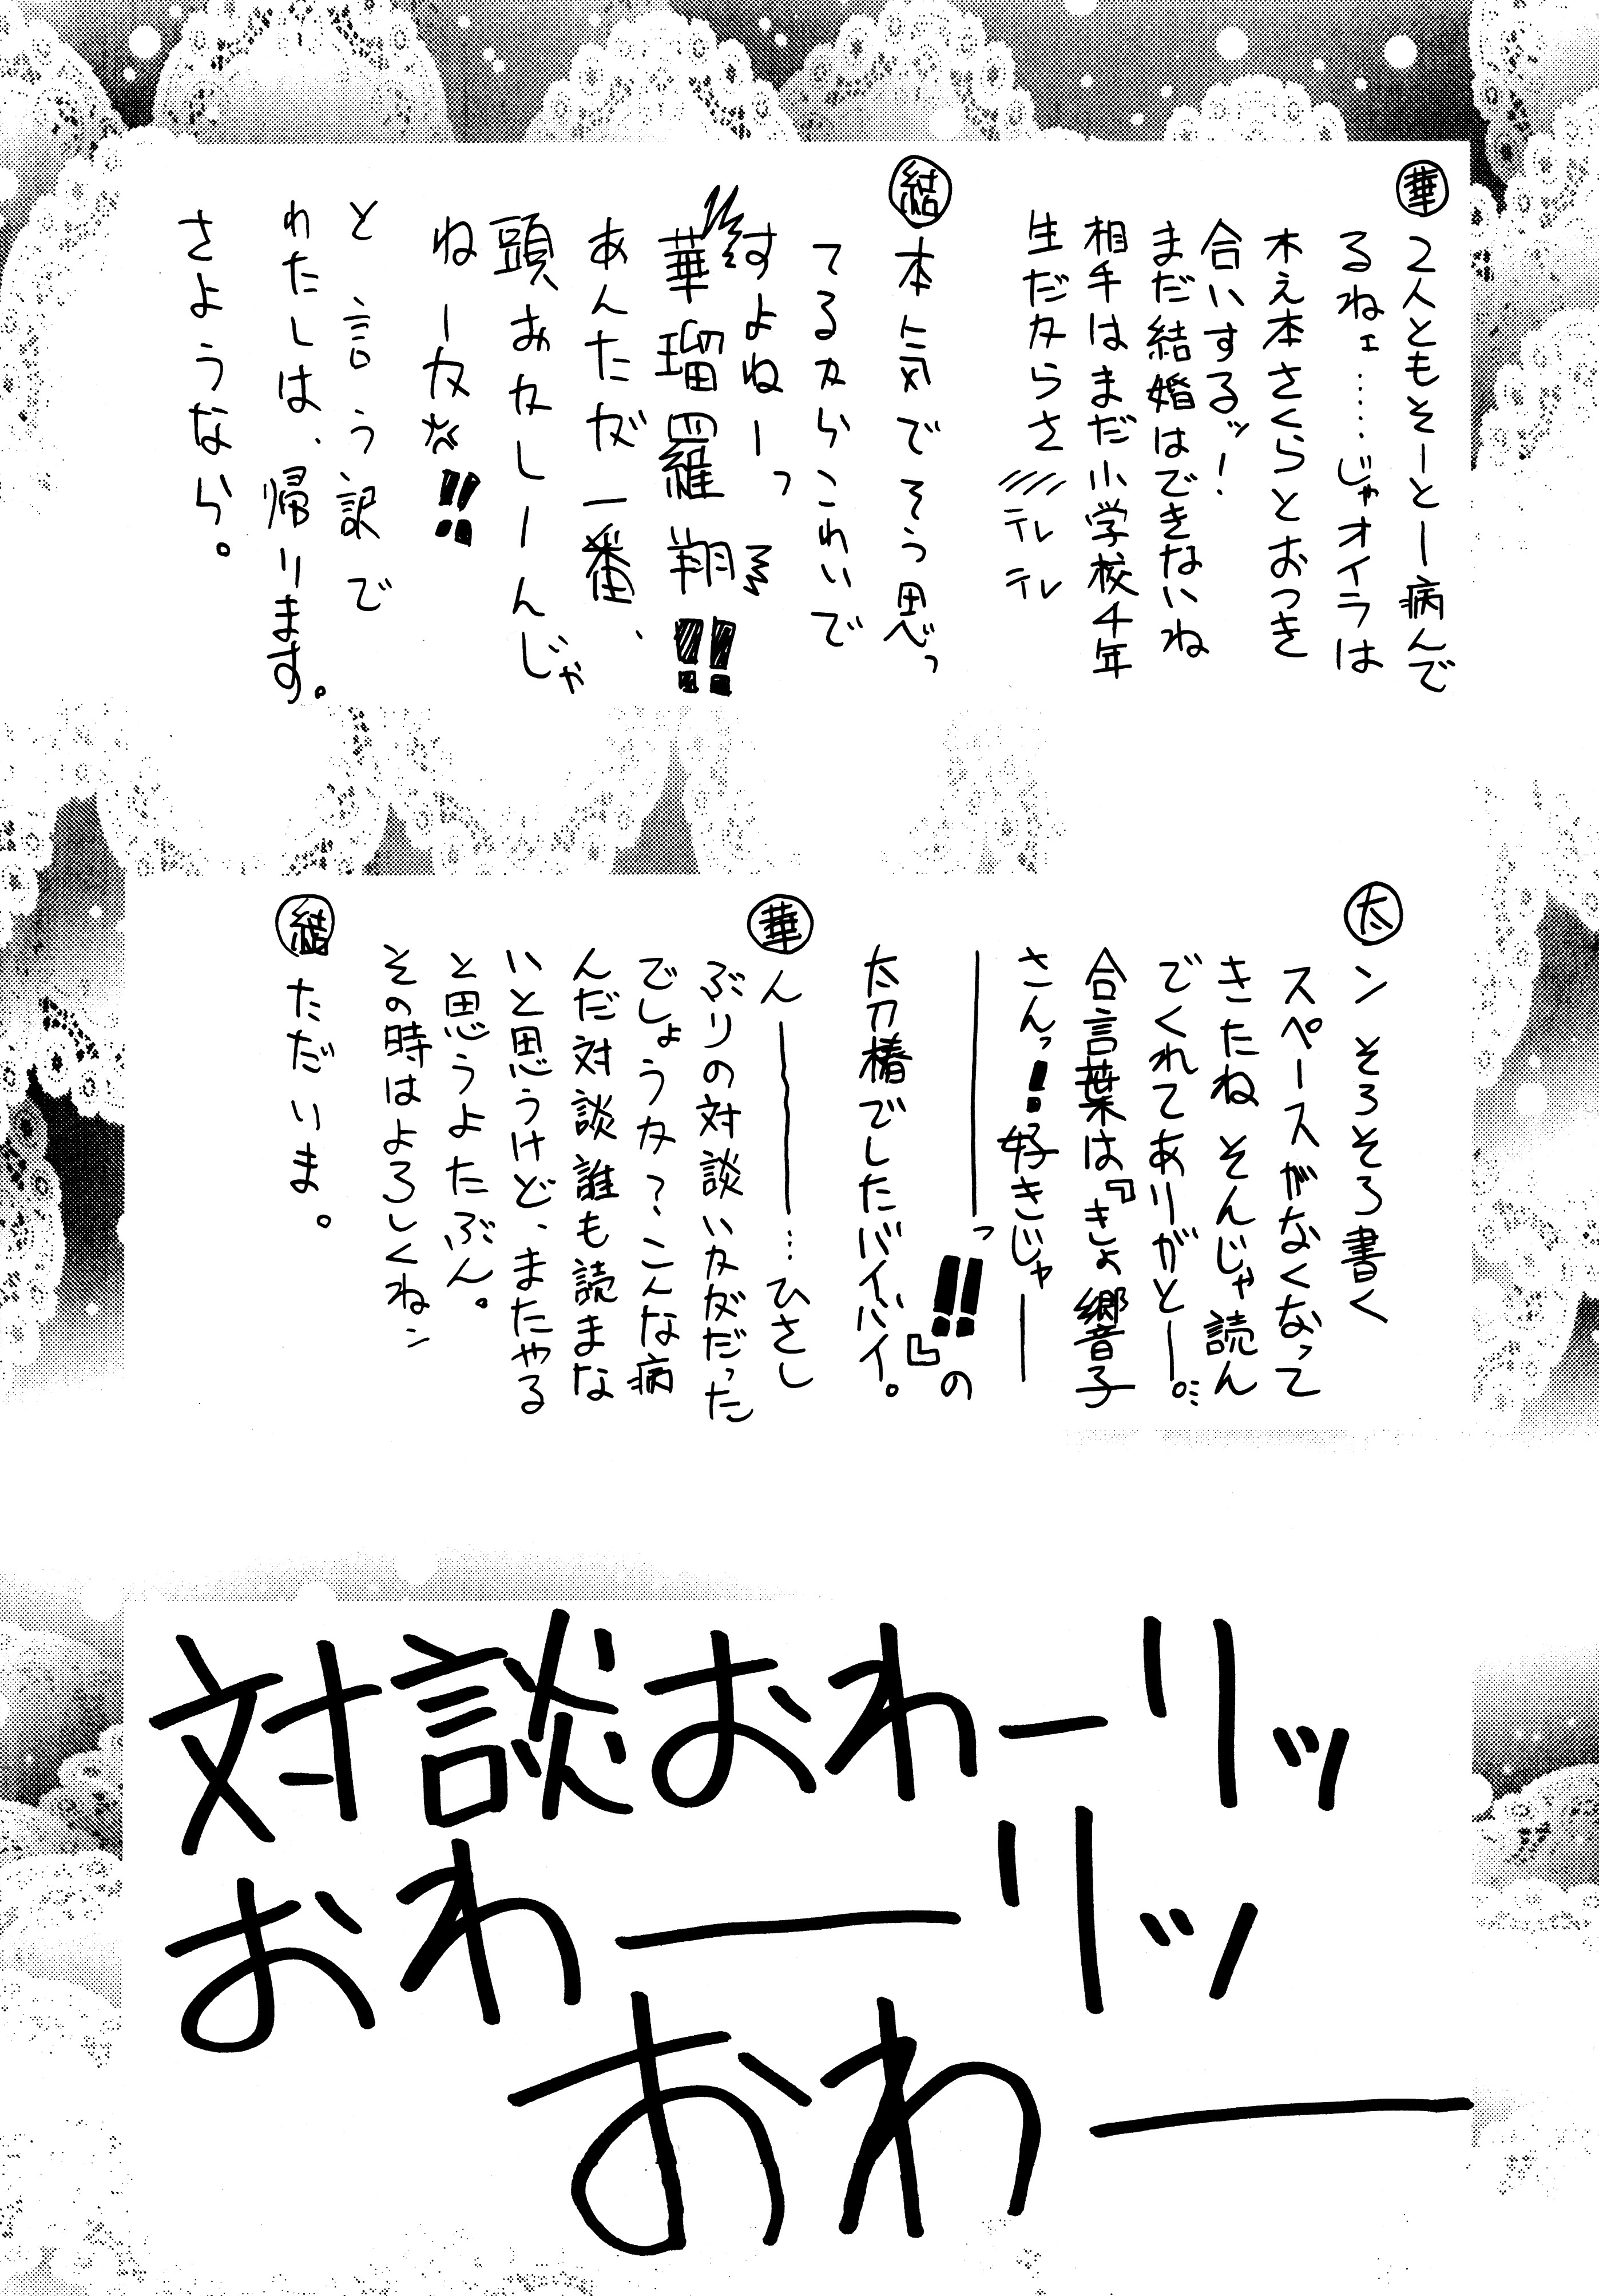 華
2人ともそーとー病んで
るねェ……じゃオイラは
木之本さくらとおつき
合いするッ!
まだ結婚はできないね
相手はまだ小学校4年
生だからさ///テレテレ
結
本気でそう思っ
てるからこわいで
すよねーっ
華瑠羅翔!!
あんたが一番、
頭おかしーんじゃ
ねーか!!
と言う訳で
わたしは、帰ります。
さようなら。
太
ンそろそろ書く
スペースがなくなって
きたねそんじゃ読ん
でくれてありがとー。
合言葉は『きょ響子
さんっ!好きじゃー
ーっ!!』の
太刀椿でしたバイバイ。
華
んー…ひさし
ぶりの対談いかがだった
でしょうか?こんな病
んだ対談誰も読まな
いと思うけど、またやる
と思うよたぶん。
その時はよろしくねン
結
ただいま。
対談おわーリッ
おわーリッ
おわー